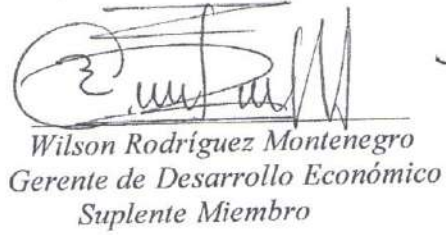 Wilson Rodríguez Montenegro
Gerente de Desarrollo Económico
Suplente Miembro